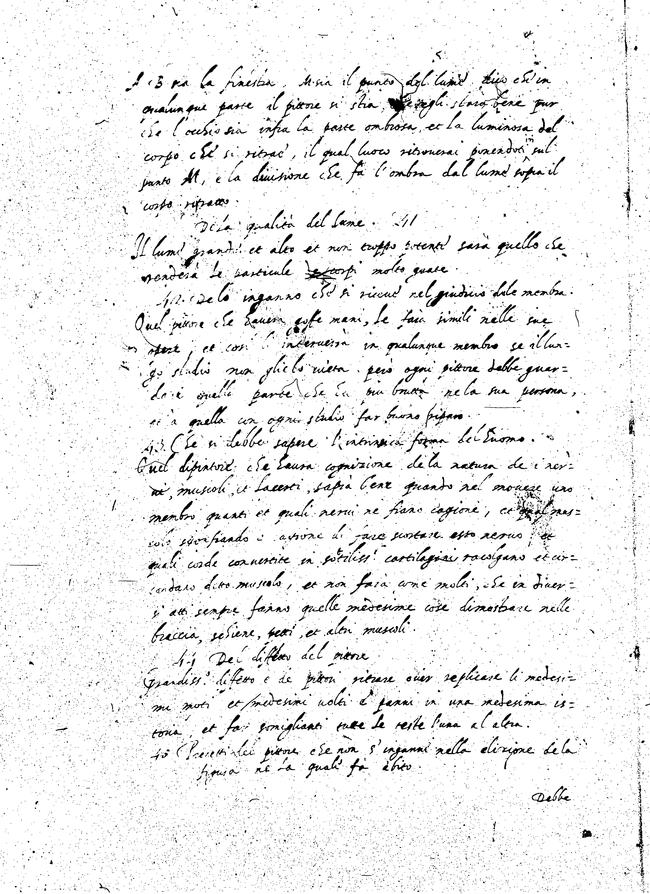 A B sia la finestra, M sia il punto del lume dico che in
qualunque parte il pittore si stia ch'egli starà bene pur
che l'occhio sia infra la parte ombrosa, et la luminosa del
corpo che si ritrae, il qual luoco ritroverai ponendoti sul
punto M, e la divisione che fa l'ombra dal lume sopra il
corpo ritratto.
Dela qualità del lume. 41
Il lume grande et alto et non troppo potente sarà quello che
renderà le particule de corpi molto grate.
42. Delo inganno che si riceve nel giudicio dele membra.
Quel pittore che havera goffe mani, le farà simili nelle sue
opere, et cosi l'interverrà in qualunque membro se il lun=
go studio non glielo vieta. però ogni pittore debbe guar=
dare quella parte che ha piu brutta ne la sua persona,
et a quella con ogni studio far buono riparo.
43. Che si debbe sapere l'intrinsica forma del huomo.
Quel dipintore che haura cognizione dela natura de i ner=
vi, muscoli, et lacerti, saprà bene quando nel movere uno
membro quanti et quali nervi ne siano cagione, et qual mus=
colo sgonfiando è cagione di fare scortare esso nervo, et
quali corde convertite in sotiliss. cartilagini racolgano et cir=
condano ditto muscolo, et non farà come molti, che in diver=
si atti sempre fanno quelle medesime cose dimostrare nelle
braccia, schiene, petti, et altri muscoli.
44 Del diffetto del pittore
Grandiss.o diffetto è de pittori ritrare over replicare li medesi=
mi moti et medesimi volti e panni in una medesima is=
toria et far somiglianti tutte le teste l'una al altra.
45 Precetti del pittore che non s'inganni nella elizione dela
figura ne la quale fa abito.
Debbe